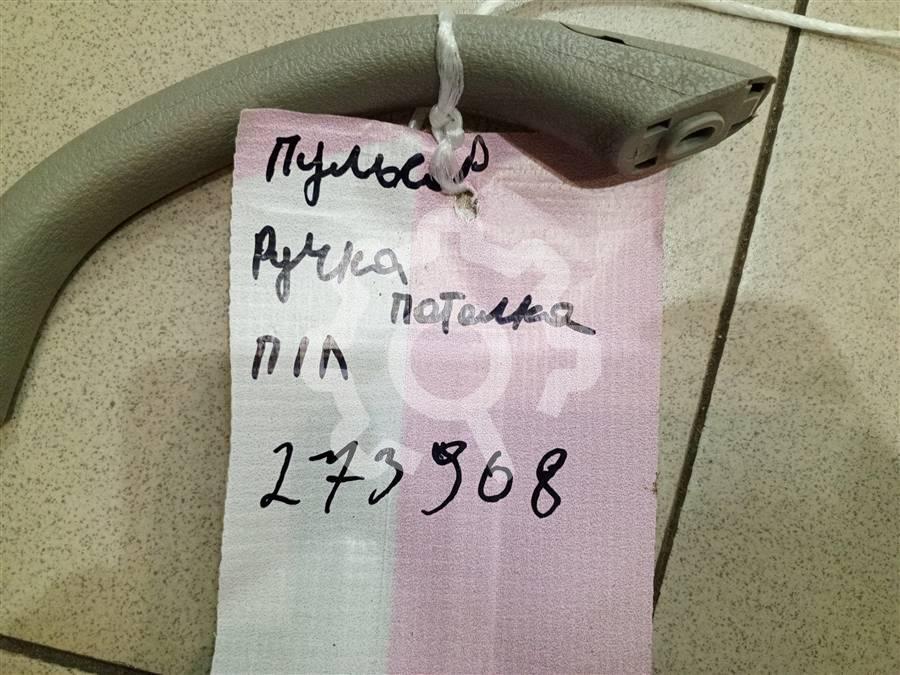 Пульсар
Ручка
паталка
П/Л
273908